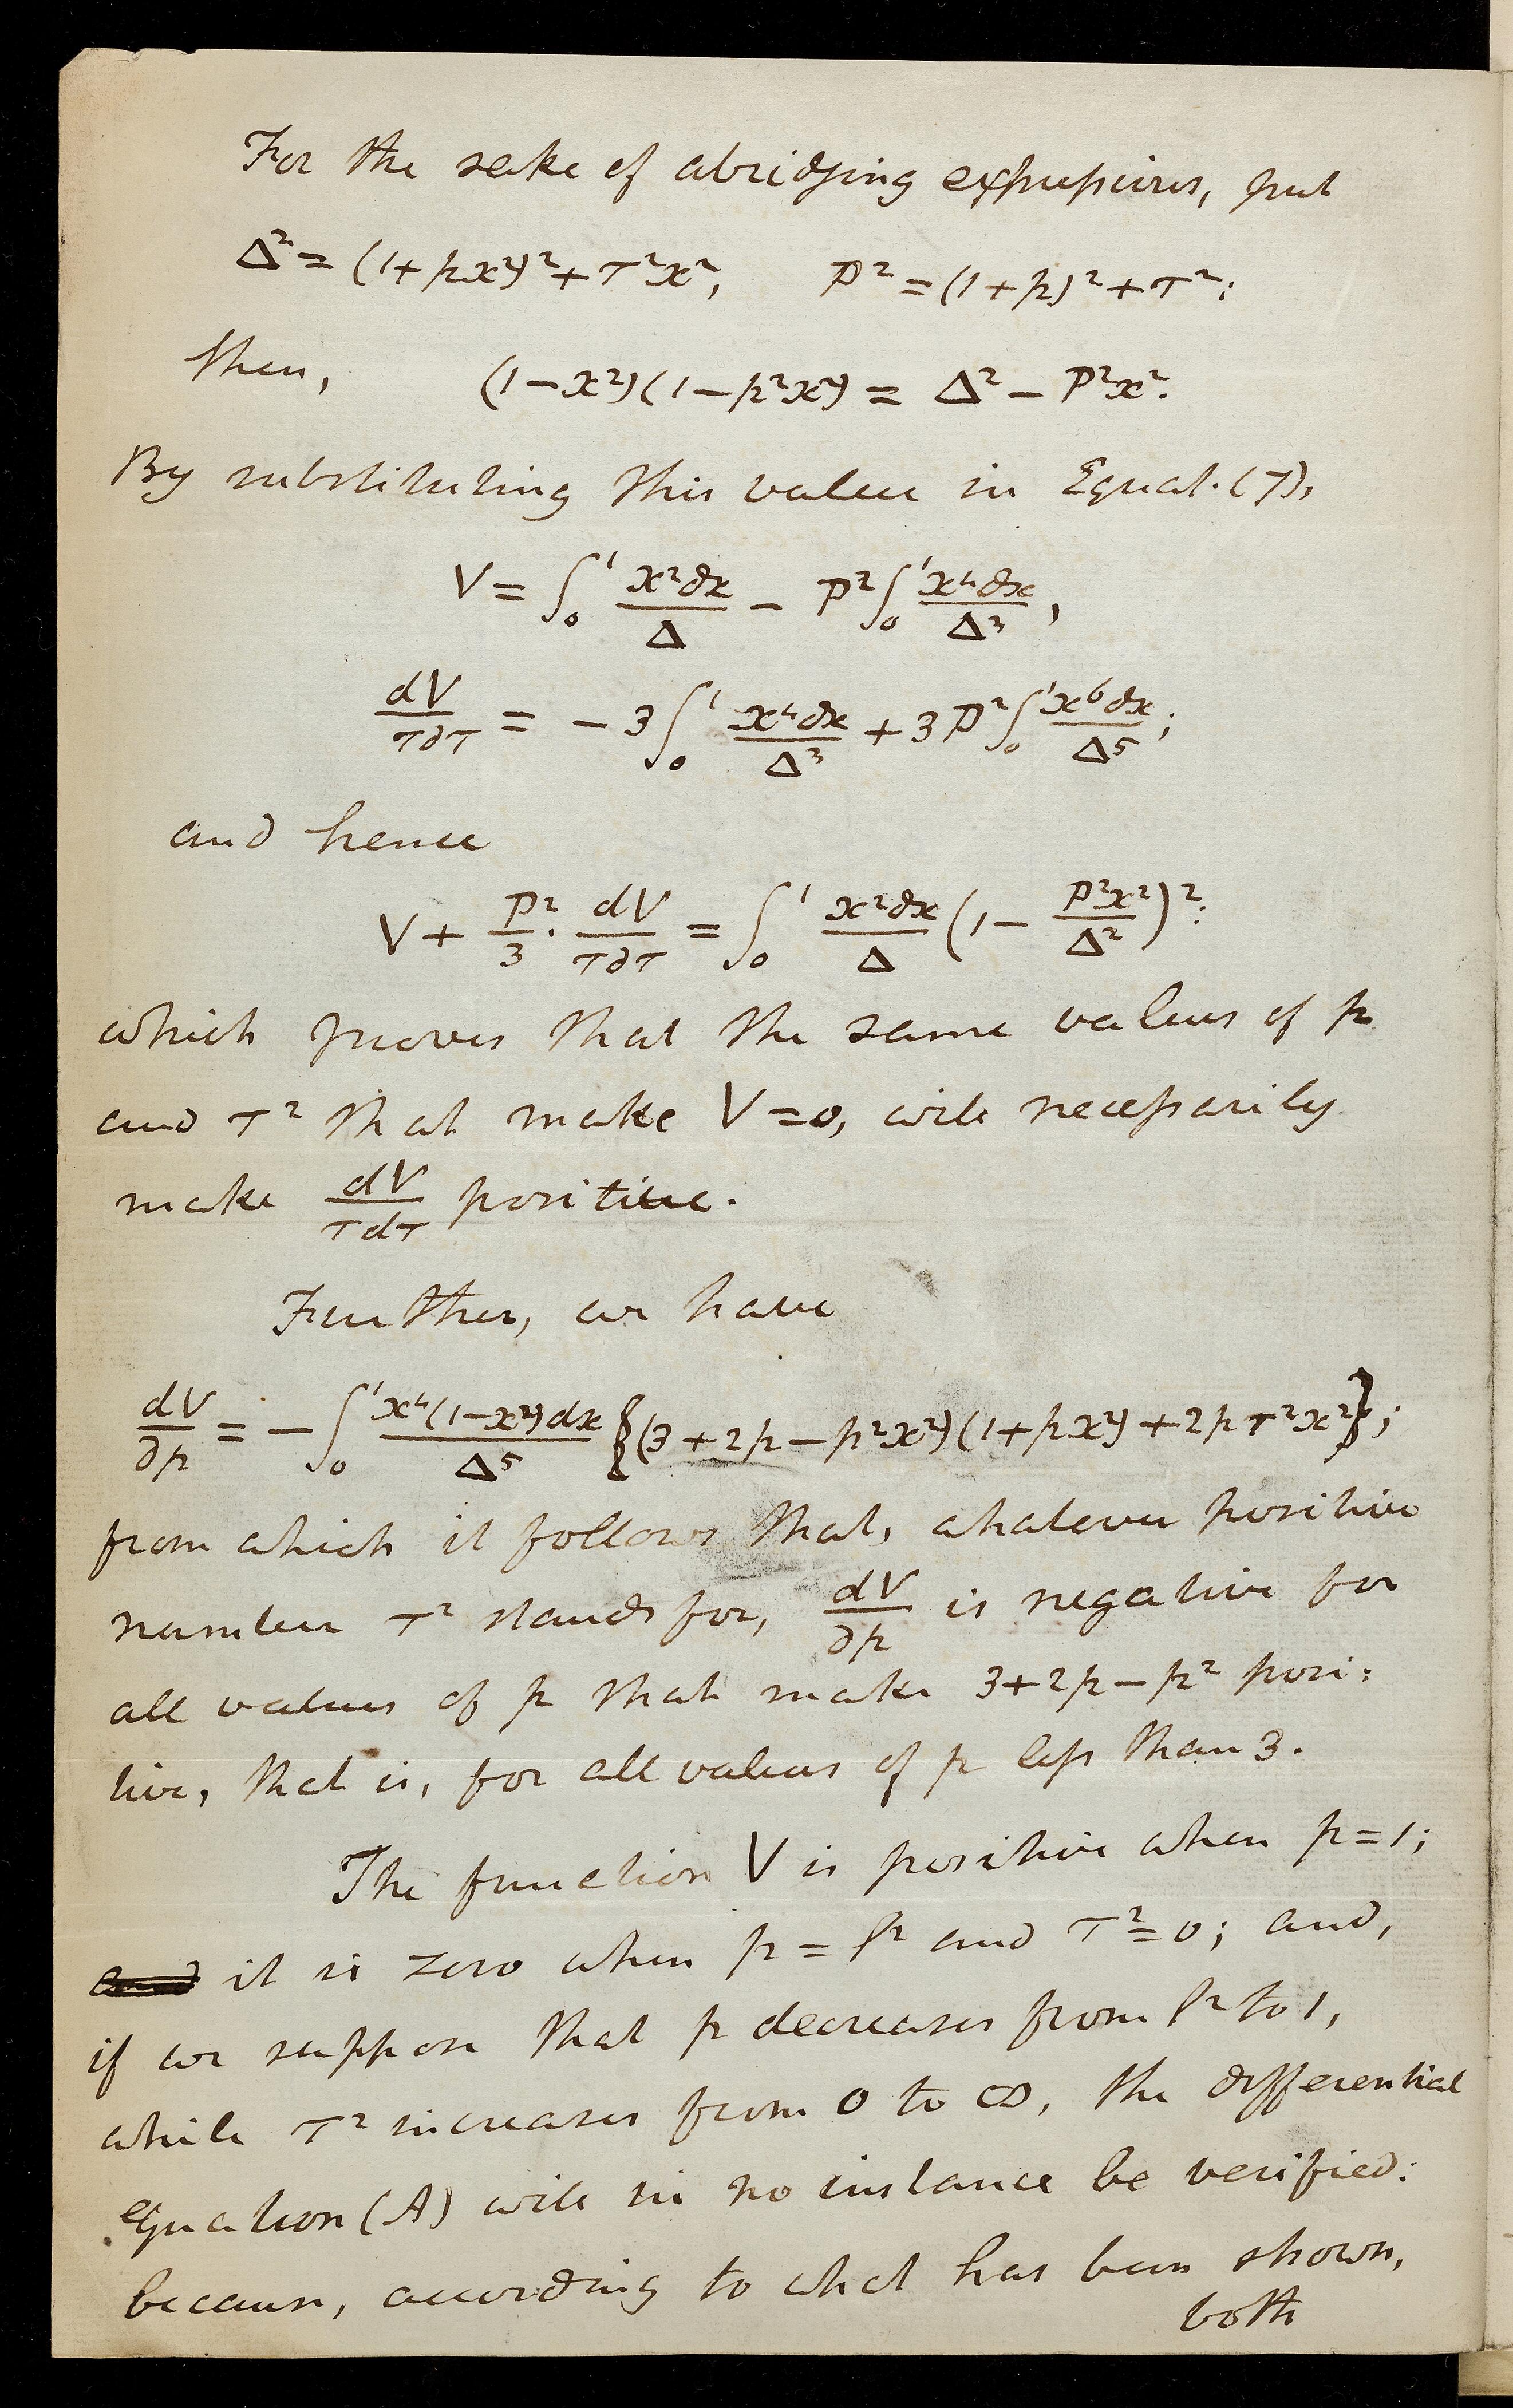 For the sake of abridging expressions, put
Δ² = (1+px²)² + τ²x², P² = (1+p)² + τ²:
then, (1−x²)(1−p²x²) = Δ² − P²x².
By substituting this value in Equat. (7),
V = ∫₀¹ x²dx/Δ − P² ∫₀¹ x⁴dx/Δ³,
dV/τdτ = −3 ∫₀¹ x⁴dx/Δ³ + 3P² ∫₀¹ x⁶dx/Δ⁵;
and hence
V + P²/3 · dV/τdτ = ∫₀¹ x²dx/Δ (1 − P²x²/Δ²)²:
which proves that the same values of p
and τ² that make V=0, will necessarily
make dV/τdτ positive.
Further, we have
dV/dp = − ∫₀¹ x⁴(1−x²)dx/Δ⁵ {(3+2p−p²x²)(1+px²) + 2pτ²x²};
from which it follows that, whatever positive
number τ² stands for, dV/dp is negative for
all values of p that make 3+2p−p² posi:
tive, that is, for all values of p less than 3.
The function V is positive when p=1;
and it is zero when p = l² and τ²=0; and,
if we suppose that p decreases from l² to 1,
while τ² increases from 0 to ∞, the differential
equation (A) will in no instance be verified:
because, according to what has been shown,
both